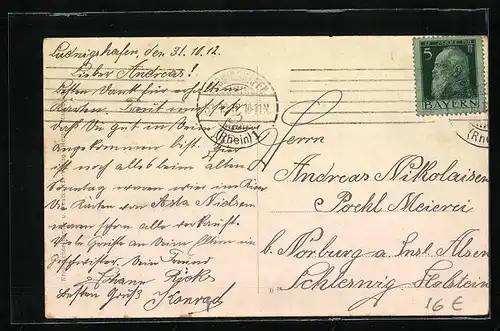 Ludwigshafen, den 31.10.12.
Lieber Andreas!
Besten Dank für erhaltene
Karten. Freut mich
daß Du gut in Deine
angekommen bist. Hier
ist noch alles beim alten.
Sonntag waren wir im Kino
Die Karten von Asta Nielsen
waren schon alle verkauft.
Viele Grüße an Deine Eltern u.
Geschwister. Dein Freund
Besten Gruß Konrad
(Rhein)
5
BAYERN
Herrn
Andreas Nikolaisen
Pochl Meierei
b. Norburg a. Insl. Alsen
Schleswig-Holstein
16 €